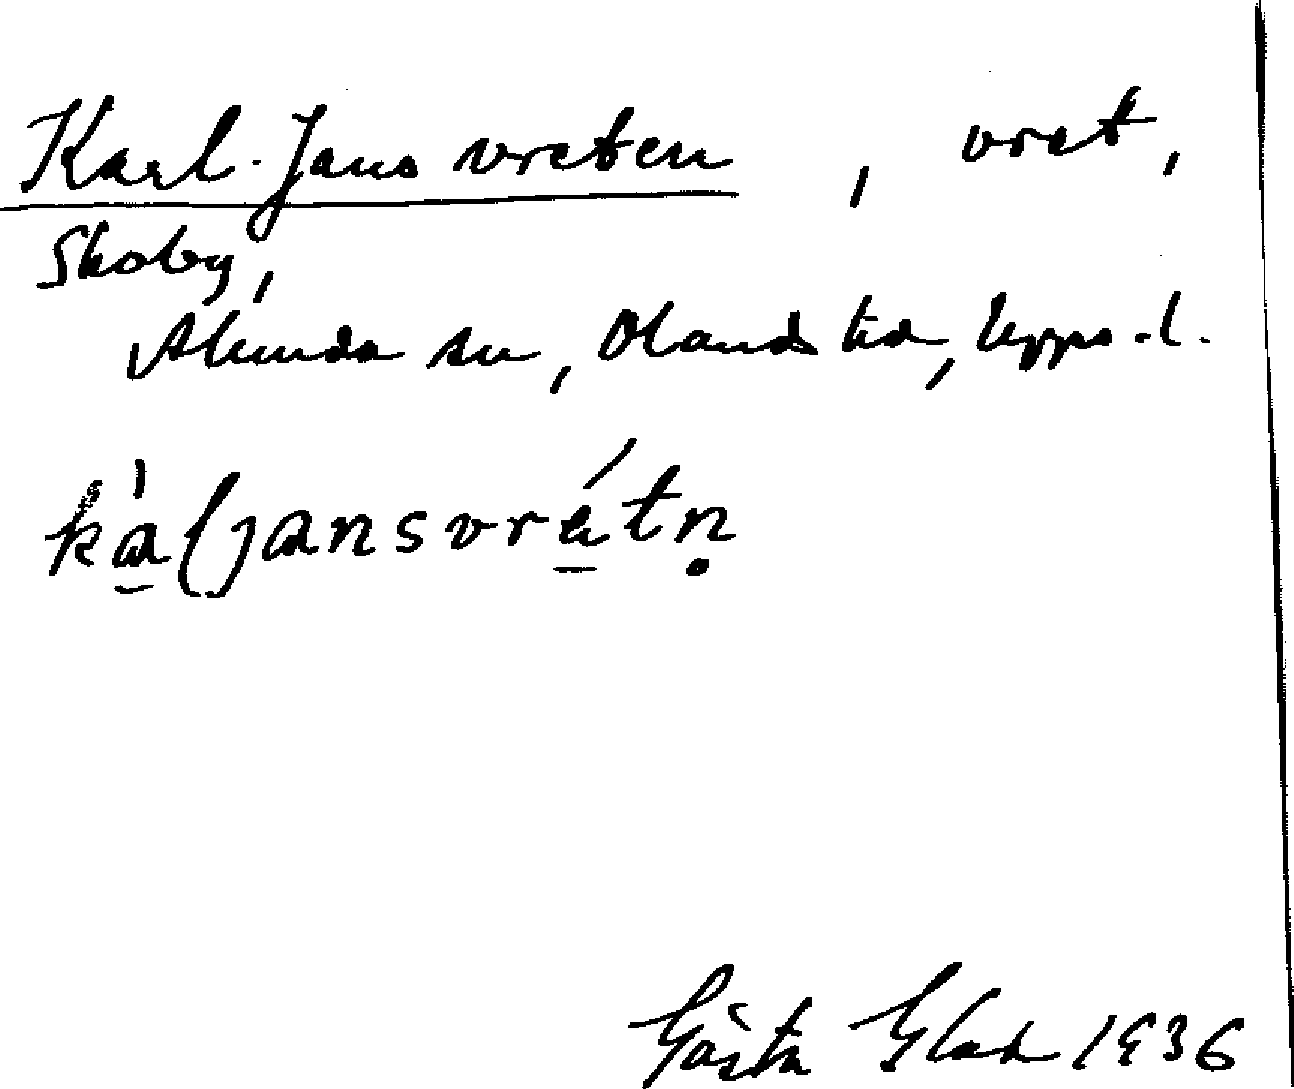 Karl-Jans vreten, vret,
Skoby,
Alunda sn, Olands hd, Upps. l.
kàljansvrétṇ
Gösta Glad 1936